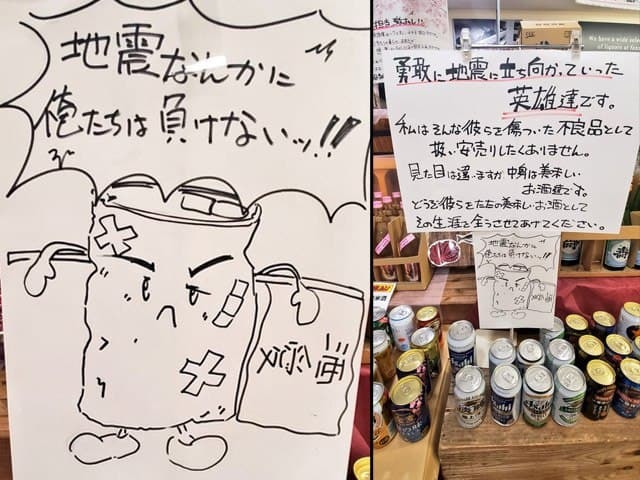 地震なんかに
俺たちは負けないッ!!
勇敢に地震に立ち向かっていった
英雄達です。
私はそんな彼らを傷ついた不良品として
扱い安売りしたくありません。
見た目は違いますが中身は美味しい
お酒達です。
どうぞ彼らをただの美味しいお酒として
その生涯を全うさせてあげてください。
地震なんかに
俺たちは負けないッ!!
We have a wide selec
of liquors of fam
Asahi
Asahi